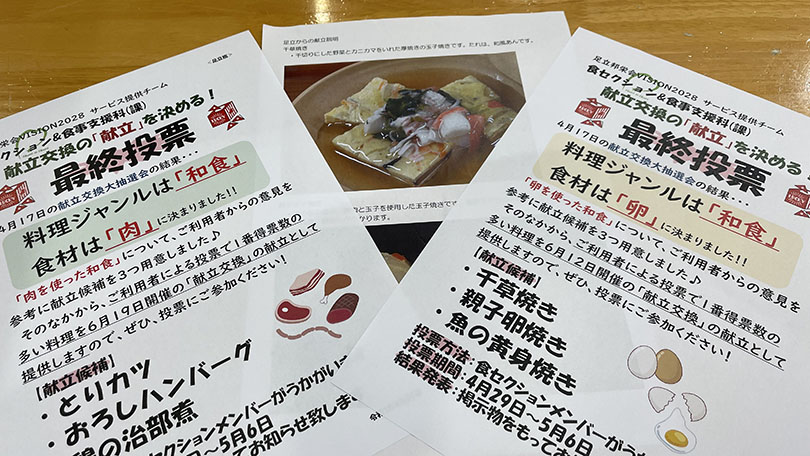 <足立版>
栄会VISION2028 サービス提供チーム
セクション&食事支援科(課)
献立交換の「献立」を決める!
最終投票
4月17日の献立交換大抽選会の結果・・・
料理ジャンルは「和食」
食材は「肉」に決まりました!!
「肉を使った和食」について、ご利用者からの意見を
参考に献立候補を3つ用意しました♪
そのなかから、ご利用者による投票で1番得票数の
多い料理を6月19日開催の「献立交換」の献立として
提供しますので、ぜひ、投票にご参加ください!
【献立候補】
・とりカツ
・おろしハンバーグ
の治部煮
セクションメンバーがうかがい
日~5月6日
てお知らせ致しま
足立からの献立説明
千草焼き
・千切りにした野菜とカニカマをいれた厚焼きの玉子焼きです。たれは、和風あんです。
肉と玉子を使用した玉子焼きで
かります。
足立邦栄会VISION2028 サービス提供チーム
食セクション&食事支援科(課)
献立交換の「献立」を決める
最終投票
4月17日の献立交換大抽選会の結果・・・
料理ジャンルは「和食」
食材は「卵」に決まりました!!
「卵を使った和食」について、ご利用者からの意見を
参考に献立候補を3つ用意しました♪
そのなかから、ご利用者による投票で1番得票数の
多い料理を6月12日開催の「献立交換」の献立として
提供しますので、ぜひ、投票にご参加ください!
【献立候補】
・千草焼き
・親子卵焼き
・魚の黄身焼き
投票方法:食セクションメンバーがうか
投票期間:4月29日~5月6日
結果発表:掲示物をもってお